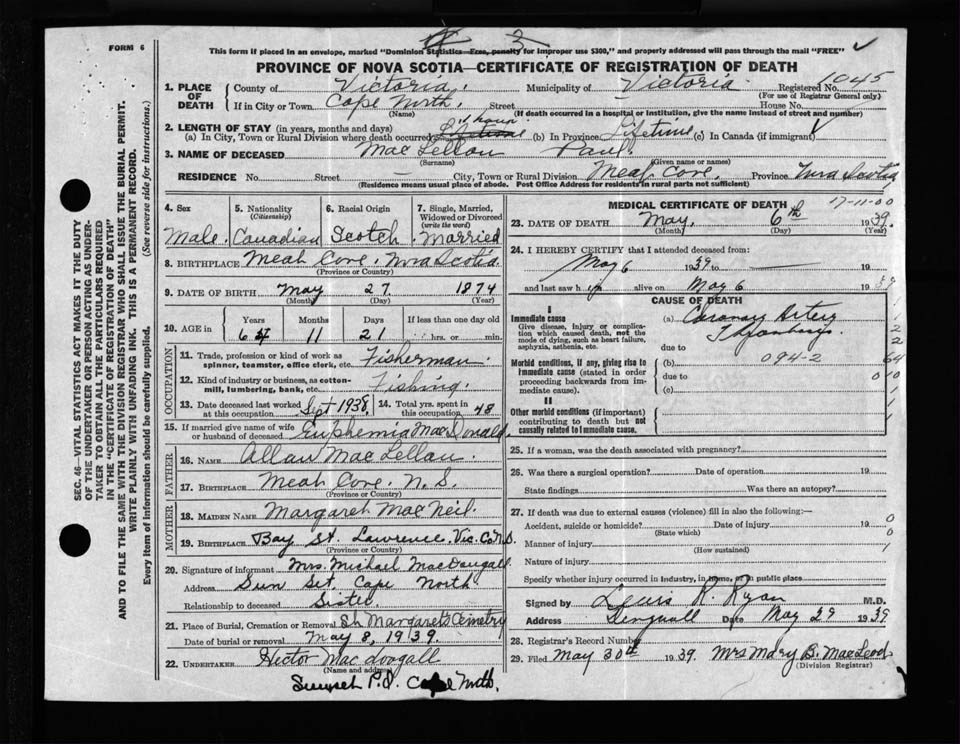 FORM 6
This form if placed in an envelope, marked "Dominion Statistics—Free, penalty for improper use $300," and properly addressed will pass through the mail "FREE"
PROVINCE OF NOVA SCOTIA—CERTIFICATE OF REGISTRATION OF DEATH
1. PLACE OF DEATH County of Victoria. Municipality of Victoria Registered No. 1045
(For use of Registrar General only)
If in City or Town Cape North. Street House No.
(Name) (If death occurred in a hospital or institution, give the name instead of street and number)
2. LENGTH OF STAY (in years, months and days)
(a) In City, Town or Rural Division where death occurred 1 hour (b) In Province Lifetime (c) In Canada (if immigrant)
3. NAME OF DECEASED MacLellan Paul.
(Surname) (Given name or names)
RESIDENCE No. Street — City, Town or Rural Division Meat Cove. Province Nova Scotia
(Residence means usual place of abode. Post Office Address for residents in rural parts not sufficient)
4. Sex Male.
5. Nationality (Citizenship) Canadian
6. Racial Origin Scotch
7. Single, Married, Widowed or Divorced (write the word) Married
8. BIRTHPLACE Meat Cove. Nova Scotia
(Province or Country)
9. DATE OF BIRTH May 27 1874
(Month) (Day) (Year)
10. AGE in Years Months Days If less than one day old
64 11 21 hrs. or min.
OCCUPATION
11. Trade, profession or kind of work as spinner, teamster, office clerk, etc. Fisherman
12. Kind of industry or business, as cotton-mill, lumbering, bank, etc. Fishing.
13. Date deceased last worked at this occupation Sept 1938. 14. Total yrs. spent in this occupation 48
15. If married give name of wife or husband of deceased Euphemia MacDonald.
FATHER
16. NAME Allan MacLellan.
17. BIRTHPLACE Meat Cove. N.S.
(Province or Country)
MOTHER
18. MAIDEN NAME Margaret MacNeil.
19. BIRTHPLACE Bay St. Lawrence, Vic. Co. N.S.
(Province or Country)
20. Signature of informant Mrs. Michael MacDougall.
Address Sun Set, Cape North
Relationship to deceased Sister.
21. Place of Burial, Cremation or Removal St Margarets Cemetry
Date of burial or removal May 8, 1939.
22. UNDERTAKER Hector MacDougall
(Name and address)
Sunset P.O. Cape North.
MEDICAL CERTIFICATE OF DEATH 17-11-00
23. DATE OF DEATH May, 6th 1939.
(Month) (Day) (Year)
24. I HEREBY CERTIFY that I attended deceased from:
May 6 1939 to — 19
and last saw h alive on May 6 1939
CAUSE OF DEATH
I
Immediate cause (a) Coronary Artery
Give disease, injury or complication which caused death, not the mode of dying, such as heart failure, asphyxia, asthenia, etc.
due to
Morbid conditions, if any, giving rise to immediate cause (stated in order proceeding backwards from immediate cause).
(b) 094-2
due to
(c)
II
Other morbid conditions (if important) contributing to death but not causally related to immediate cause.
1
2
2
64
0 10
1
1
1
25. If a woman, was the death associated with pregnancy?
26. Was there a surgical operation? Date of operation 19
State findings Was there an autopsy?
27. If death was due to external causes (violence) fill in also the following:— 0
Accident, suicide or homicide? Date of injury 19 0
(State which)
Manner of injury 1
(How sustained)
Nature of injury
Specify whether injury occurred in industry, in home, or in public place
Signed by Lewis R. Ryan M.D.
Address Date May 29 1939
28. Registrar's Record Number
29. Filed May 30th 1939. Mrs Mary B. MacLeod
(Division Registrar)
SEC. 46—VITAL STATISTICS ACT MAKES IT THE DUTY
OF THE UNDERTAKER OR PERSON ACTING AS UNDER-
TAKER TO OBTAIN ALL THE PARTICULARS REQUIRED
IN THE "CERTIFICATE OF REGISTRATION OF DEATH"
AND TO FILE THE SAME WITH THE DIVISION REGISTRAR WHO SHALL ISSUE THE BURIAL PERMIT.
WRITE PLAINLY WITH UNFADING INK. THIS IS A PERMANENT RECORD.
Every item of information should be carefully supplied. (See reverse side for instructions.)